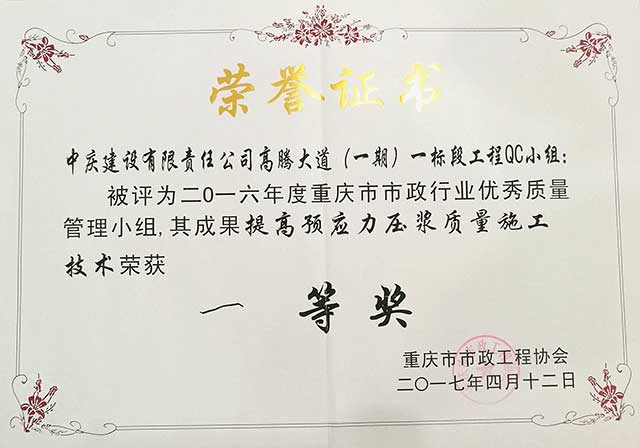 荣誉证书
中庆建设有限责任公司高腾大道（一期）一标段工程QC小组：
被评为二〇一六年度重庆市市政行业优秀质量
管理小组，其成果提高预应力压浆质量施工
技术荣获
一 等 奖
重庆市市政工程协会
二〇一七年四月十二日